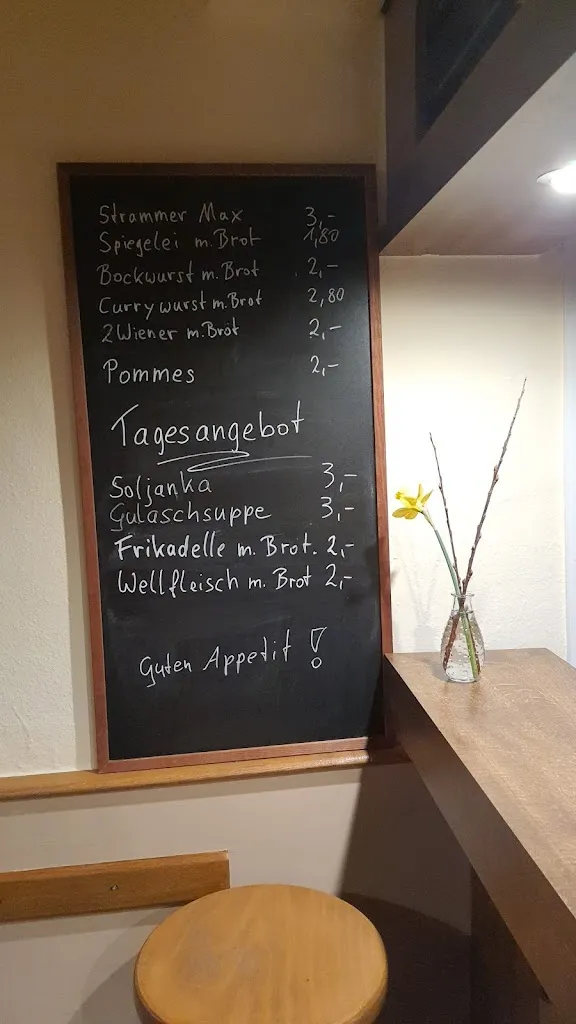 Strammer Max 3,-
Spiegelei m. Brot 1,80
Bockwurst m. Brot 2,-
Currywurst m. Brot 2,80
2 Wiener m. Brot 2,-
Pommes 2,-
Tagesangebot
Soljanka 3,-
Gulaschsuppe 3,-
Frikadelle m. Brot. 2,-
Wellfleisch m. Brot 2,-
Guten Appetit !